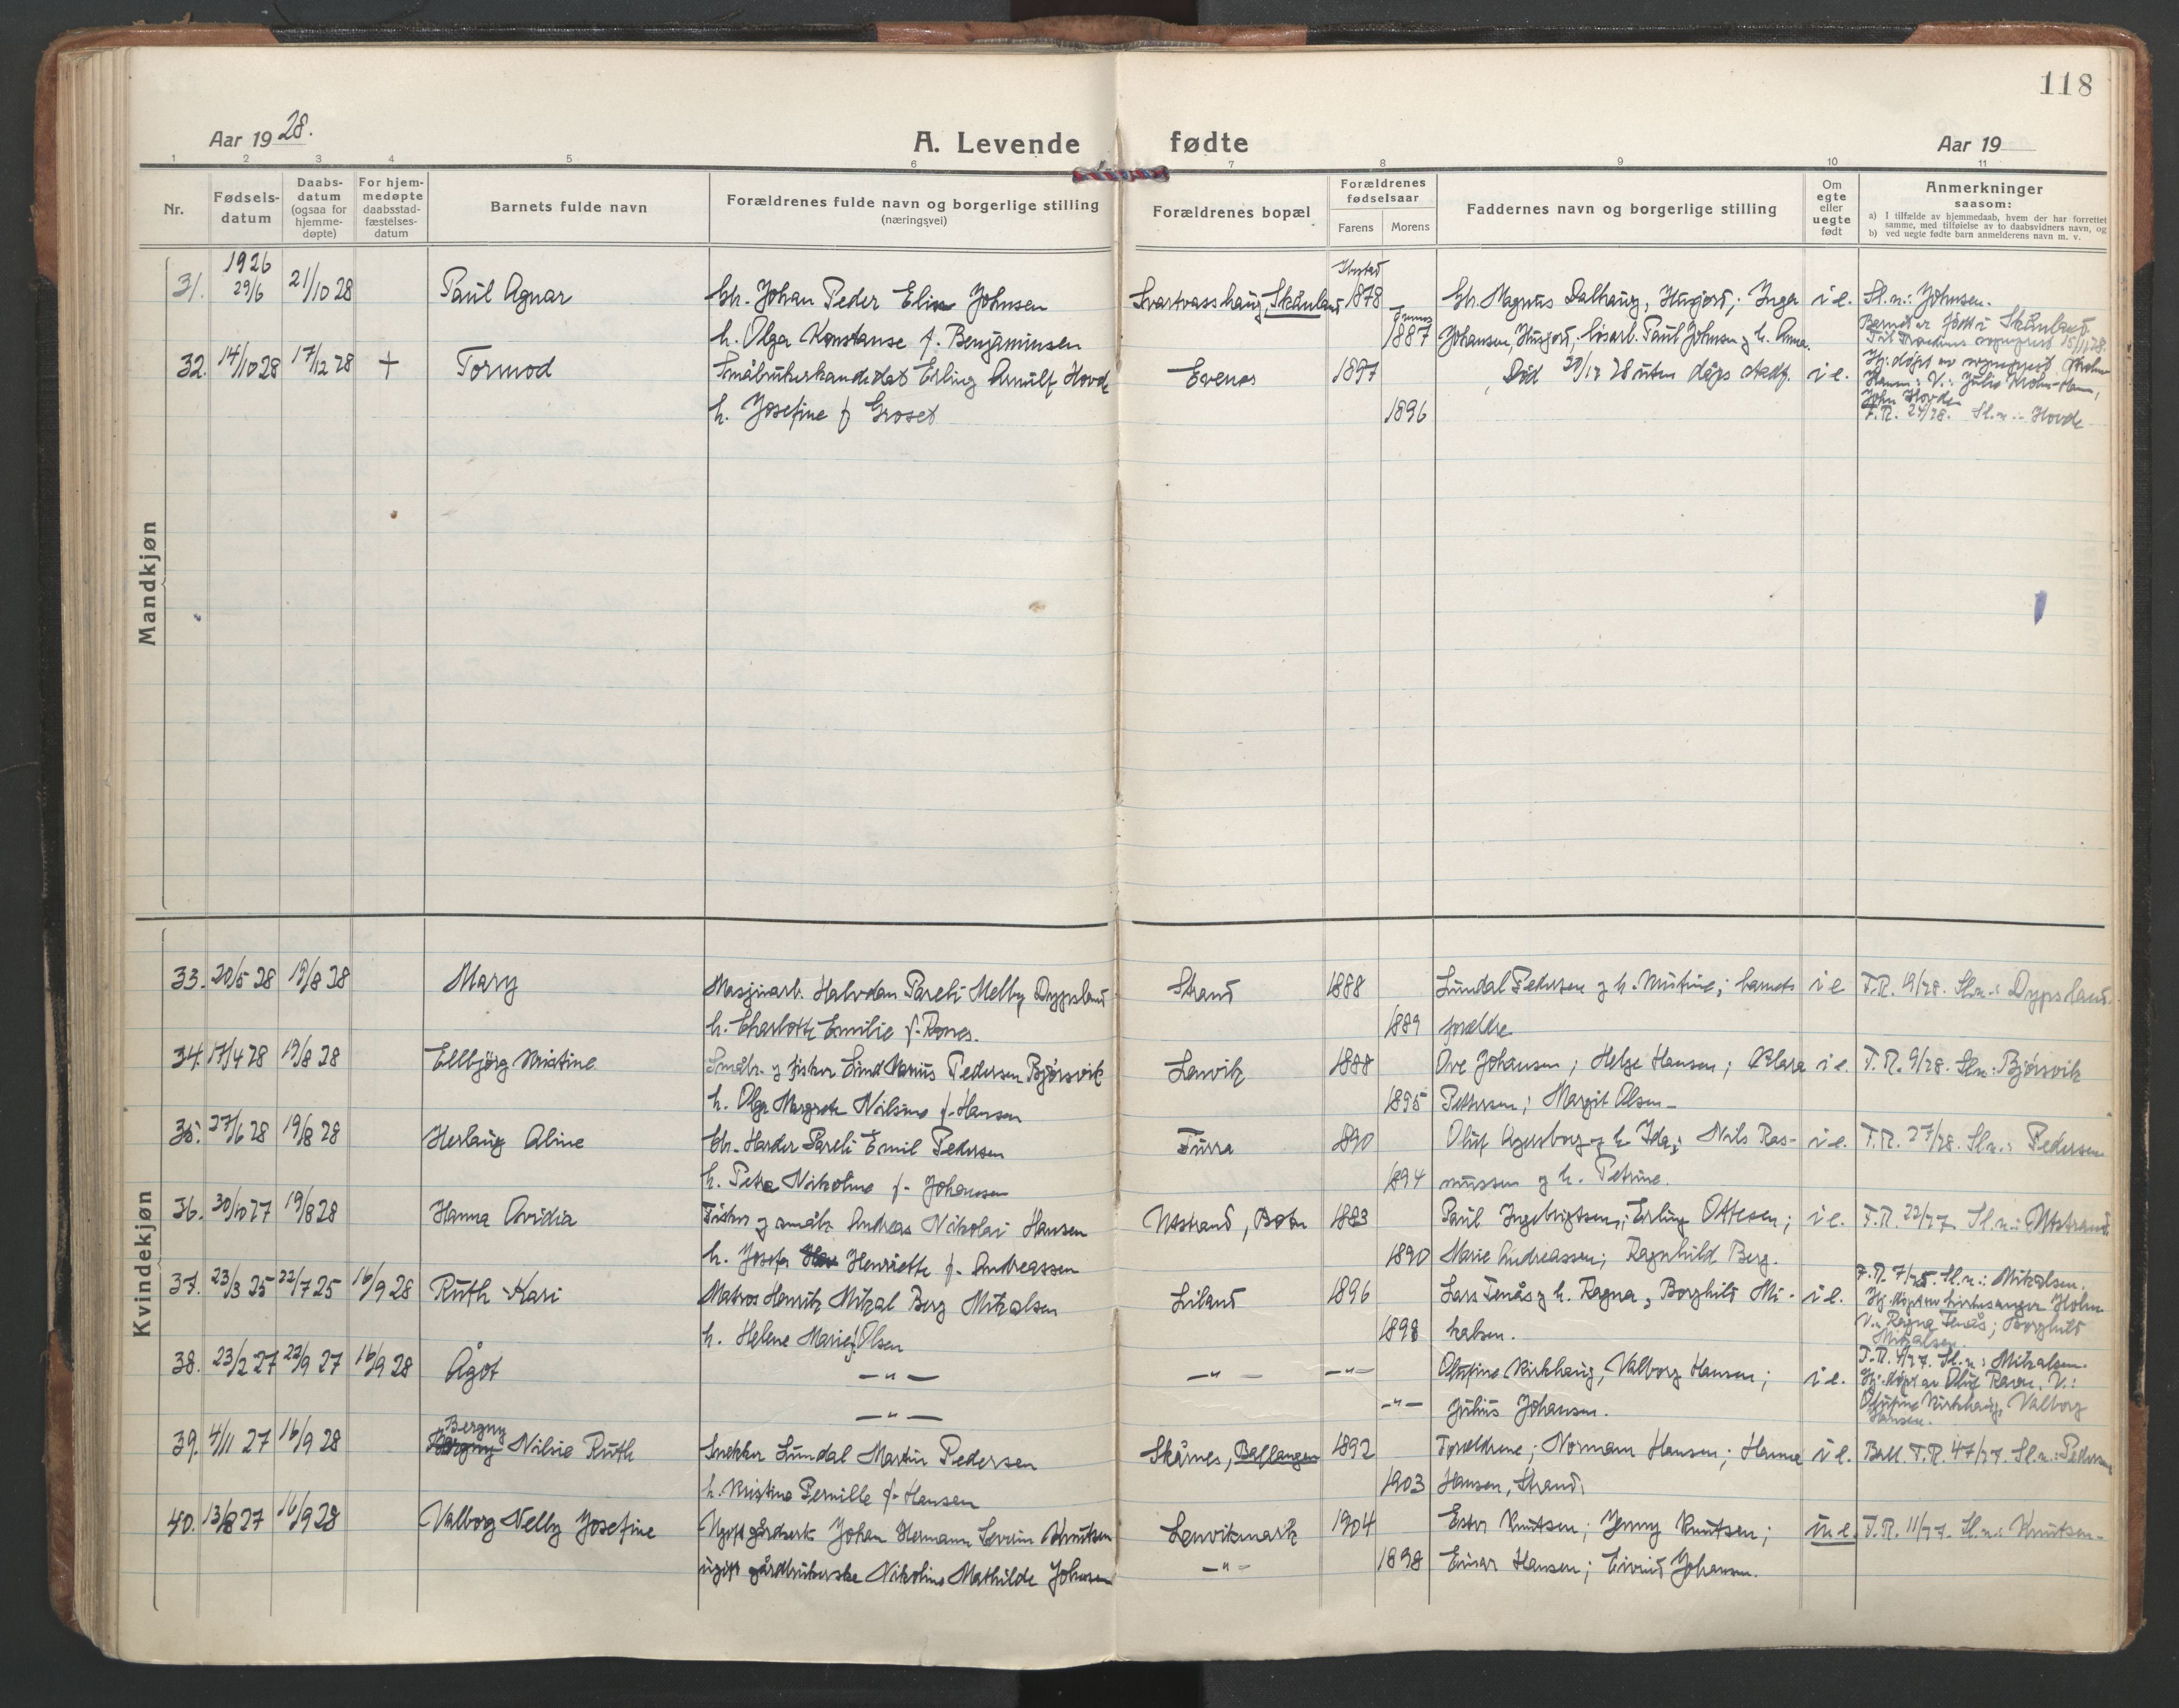 118
Aar 1928.
A. Levende fødte
Aar 19
1 2 3 4 5 6 7 8 9 10 11
Nr.
Fødsels-
datum
Daabs-
datum
(ogsaa for
hjemme-
døpte)
For hjem-
medøpte
daabsstad-
fæstelses-
datum
Barnets fulde navn
Forældrenes fulde navn og borgerlige stilling
(næringsvei)
Forældrenes bopæl
Forældrenes
fødselsaar
Farens Morens
Faddernes navn og borgerlige stilling
Om
egte
eller
uegte
født
Anmerkninger
saasom:
a) I tilfælde av hjemmedaab, hvem der har forrettet
samme, med tilføielse av to daabsvidners navn, og
b) ved uegte fødte barn anmelderens navn m. v.
Mandkjøn
31. 1926 29/6 21/10 28 Paul Agnar Gbr. Johan Peder Johnsen Svartvasshaug, Skånland Ibestad 1878 Gbr. Magnus Dalhaug, Inga i e. Sl.n.: Johnsen.
h. Olga Konstanse f. Benjaminsen 1887 Johansen, Paul Johnsen g h. Anna. Barnet er født i Skånland.
15/11 28.
32. 14/10 28 17/12 28 + Tormod Småbrukerkandidat Erling Arnulf Hovde Evenes 1897 Død 20/12 28 uten dåps stadf. i e. Hj. døpt av sogneprest
h. Josefine f Groset 1896 V.:
John Hovde
F.R. 24/28. Sl.n.: Hovde
Kvindekjøn
33. 20/5 28 19/8 28 Mary Halvdan Pareli Melby Dypsland Strand 1888 Lundal Pedersen g h. Kristine; barnets i e F.R. 19/28. Sl.n.: Dypsland.
h. Charlotte Emilie f. 1889 forældre
34. 17/4 28 19/8 28 Ellbjørg Kristine Småbr. g fisker Marius Pedersen Bjørsvik Lenvik 1888 Ove Johansen; Helge Hansen; Klara i e. F.R. 9/28. Sl.n: Bjørsvik
h. Olga Margrete f. Hansen 1895 Pettersen; Margit Olsen
35. 27/6 28 19/8 28 Herlaug Aline Gbr. Pareli Emil Pedersen Turra 1890 Oluf g h Ida; Nils Ras- i e. F.R. 27/28. Sl.n.: Pedersen
h. Petra Nikoline f. Johansen 1894 mussen g h. Petrine.
36. 30/10 27 19/8 28 Hanna Ovidia Fisker g småbr. Andreas Nikolai Hansen Utstrand, Botn 1883 Paul Ingebrigtsen; Erling Ottesen; i e. F.R. 22/27 Sl.n.: Utstrand.
h. Josefa Henriette f. Andreassen 1890 Marie Andreassen; Ragnhild Berg.
37. 23/3 25 22/7 25 16/9 28 Ruth Kari Matros Henrik Mikal Berg Mikalsen Liland 1896 Lars Tenås g h. Ragna, Borghild Mi- i e. F.R. 7/25. Sl.n.: Mikalsen.
h. Helene Marie f. Olsen 1898 kalsen. Hj. døpt av kirkesanger Holm
V.: Ragna Tenås; Borghild
Mikalsen.
38. 23/2 27 22/9 27 16/9 28 Ågot —"— —"— —"— Olufine Kirkhaug, Valborg Hansen; i e. F.R. 4/27. Sl.n: Mikalsen.
—"— —"— Julius Johansen. Hj. døpt av Oluf V.:
Olufine Kirkhaug, Valborg
Hansen.
39. 4/11 27 16/9 28 Bergny Nilsie Ruth Snekker Lundal Martin Pedersen Skånes, Ballangen 1892 Forældrene; Normann Hansen; Hanna i e. Ball. F.R. 47/27 Sl.n.: Pedersen
h. Kristine Pernille f. Hansen 1903 Hansen, Strand.
40. 13/8 27 16/9 28 Valborg Nelly Josefine Ugift gårdsarb. Johan Hermann Severin Knutsen Lenvikmark 1904 Ester Knutsen; Jenny Knutsen; u.e. F.R. 11/27. Sl.n.: Knutsen
ugift gårdbrukerske Nikoline Mathilde Johnsen —"— 1898 Einar Hansen; Eivind Johansen.